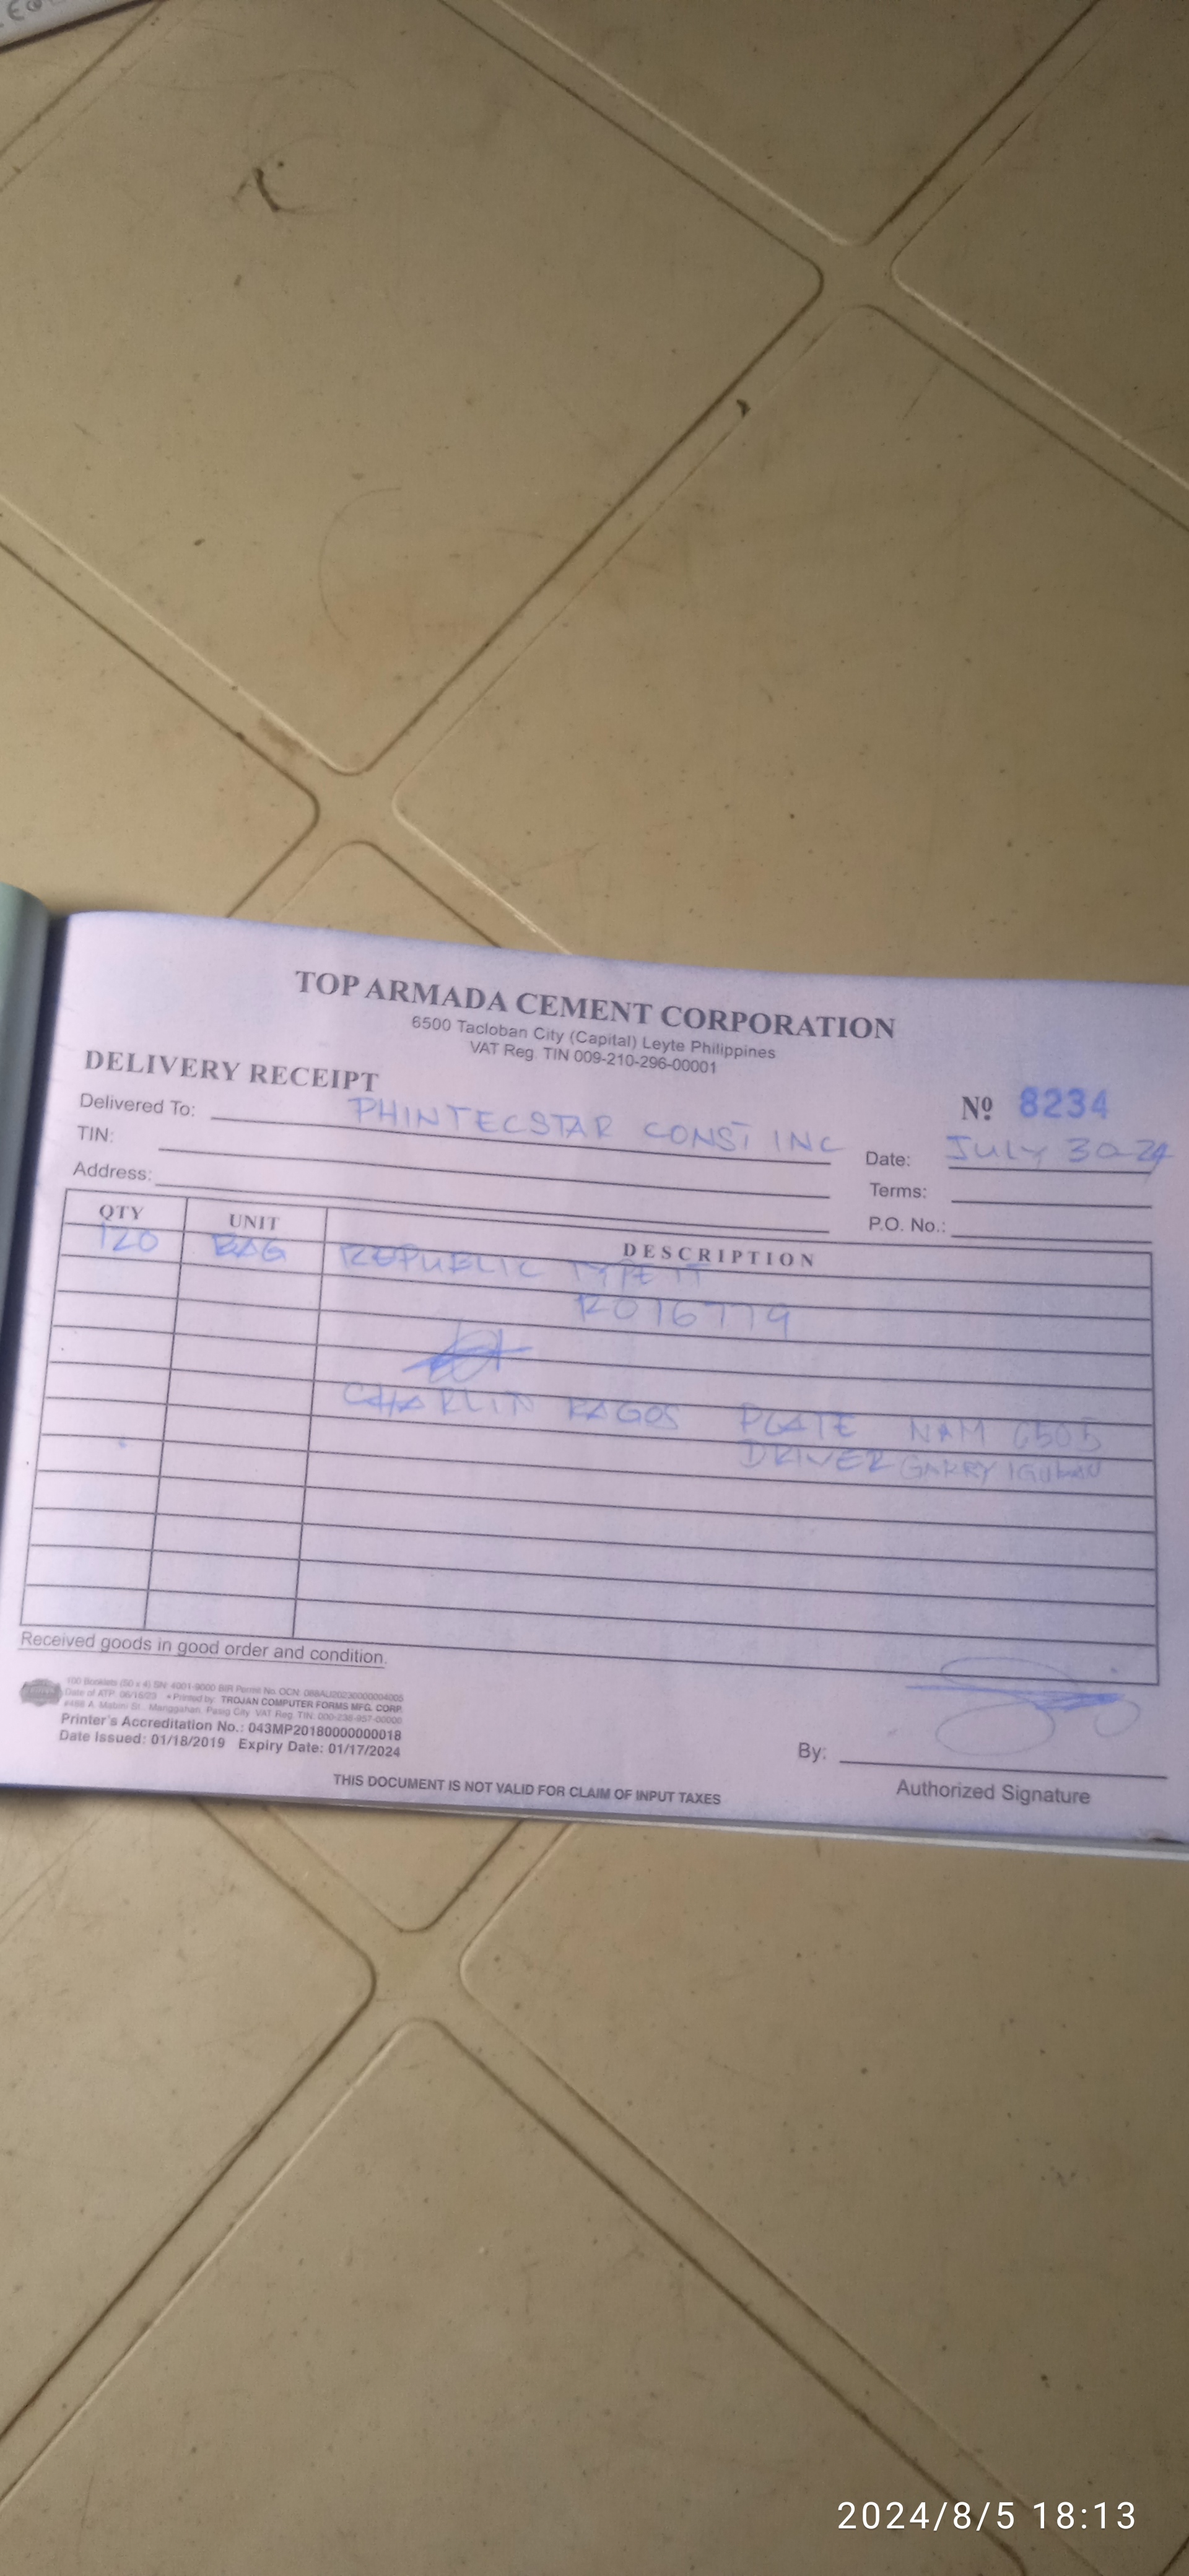 TOP ARMADA CEMENT CORPORATION
6500 Tacloban City (Capital) Leyte Philippines
VAT Reg. TIN 009-210-296-00001
DELIVERY RECEIPT
Nº 8234
Delivered To: PHINTECSTAR CONST INC
Date: JULY 30-24
TIN:
Terms:
Address:
P.O. No.:
QTY UNIT DESCRIPTION
120 BAG REPUBLIC TYPE 1T
R016779
CHARLIN RAGOS PLATE NAM 6505
DRIVER GARRY
Received goods in good order and condition.
100 Booklets (50 x 4) SN: 4001-9000 BIR Permit No. OCN:
Date of ATP: 06/16/23 *Printed by: TROJAN COMPUTER FORMS MFG. CORP.
#488 A. Mabini St., Manggahan, Pasig City VAT Reg. TIN: 000-238-957-00000
Printer's Accreditation No.: 043MP20180000000018
Date Issued: 01/18/2019 Expiry Date: 01/17/2024
By:
Authorized Signature
THIS DOCUMENT IS NOT VALID FOR CLAIM OF INPUT TAXES
2024/8/5 18:13